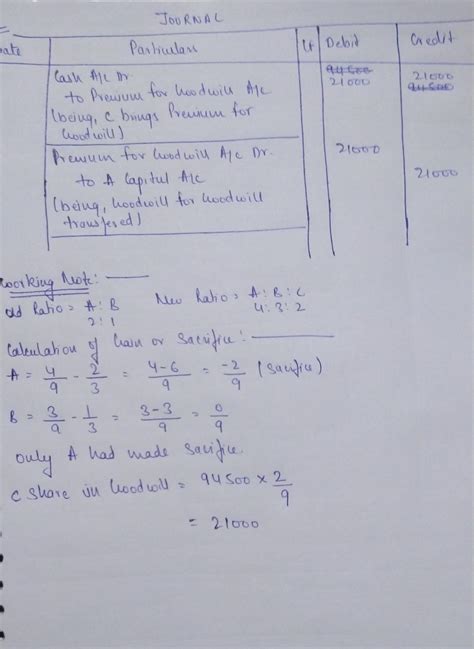 JOURNAL
ate Particulars Lf Debit Credit
Cash A/c Dr. 94500 21000
to Premium for Goodwill A/c 21000 94500
(being, C brings Premium for
Goodwill)
Premium for Goodwill A/c Dr. 21000
to A Capitul A/c 21000
(being, Goodwill for Goodwill
transfered)
Working Note:
Old Ratio = A : B New Ratio = A : B : C
2 : 1 4 : 3 : 2
Calculation of Gain or Sacrifice :
A = 4/9 - 2/3 = 4-6/9 = -2/9 (Sacrifice)
B = 3/9 - 1/3 = 3-3/9 = 0/9
only A had made sacrifice.
C share in Goodwill = 94500 × 2/9
= 21000